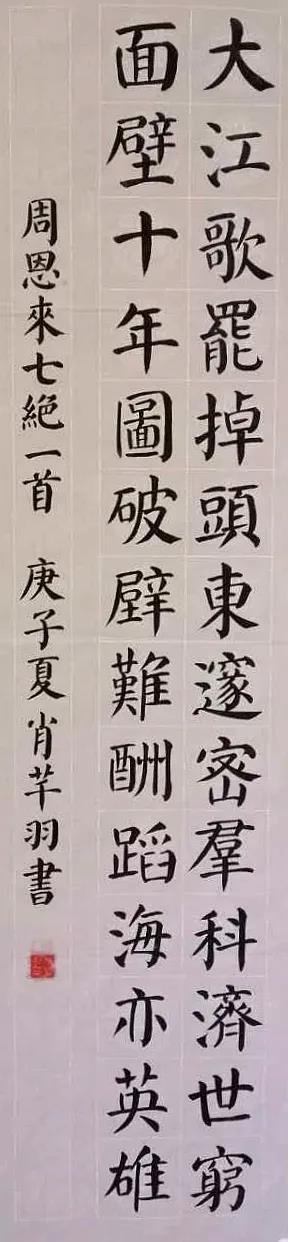 大江歌罷掉頭東邃密羣科濟世窮
面壁十年圖破壁難酬蹈海亦英雄
周恩來七絕一首　庚子夏肖芊羽書